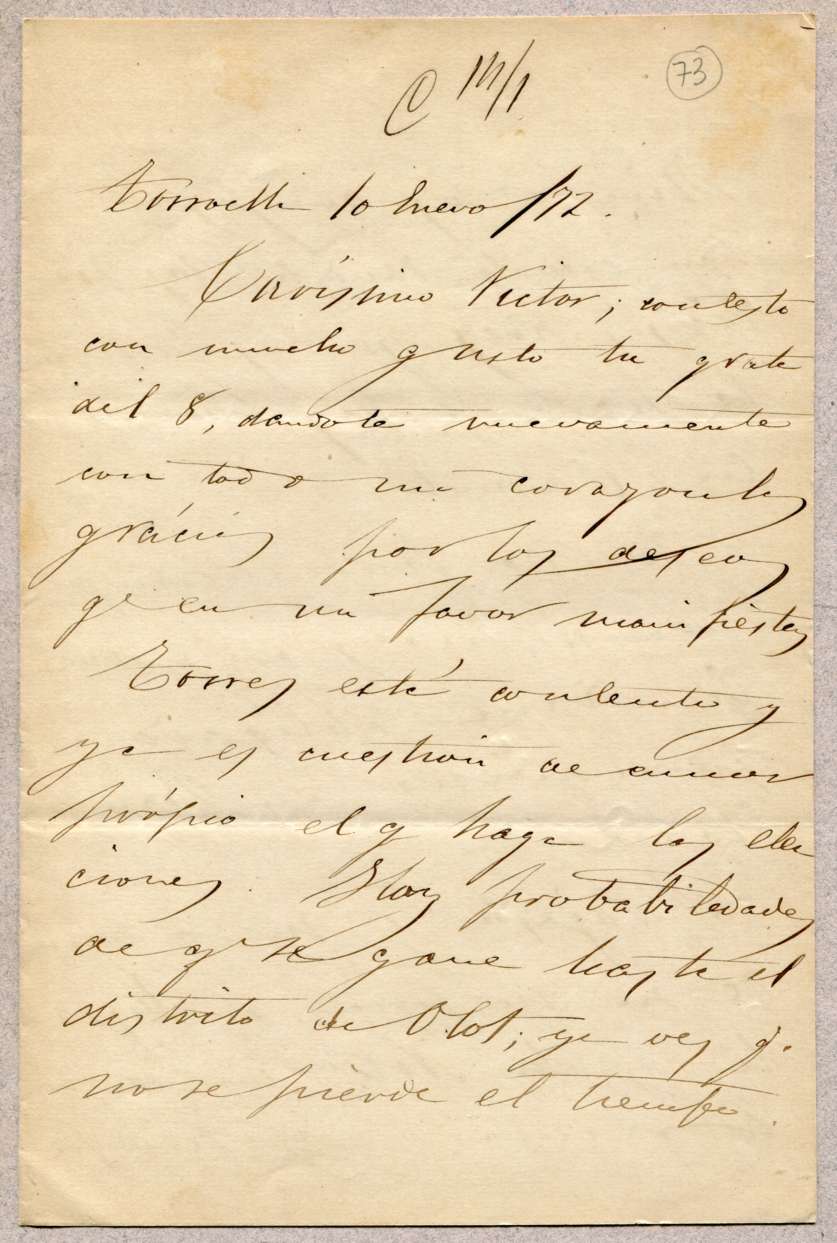 C 14/1
73
Torroella 10 Enero/72.
Carísimo Victor; contesto
con mucho gusto tu grata
del 8, dandote nuevamente
con todo mi corazon las
grácias por los deseos
qe en mi favor manifiestas
Torres está contento y
ya es cuestion de amor
própio el q haga las elec
ciones. Hay probabilidades
de qe se gane hasta el
distrito de Olot; ya ves q.
no se pierde el tiempo.